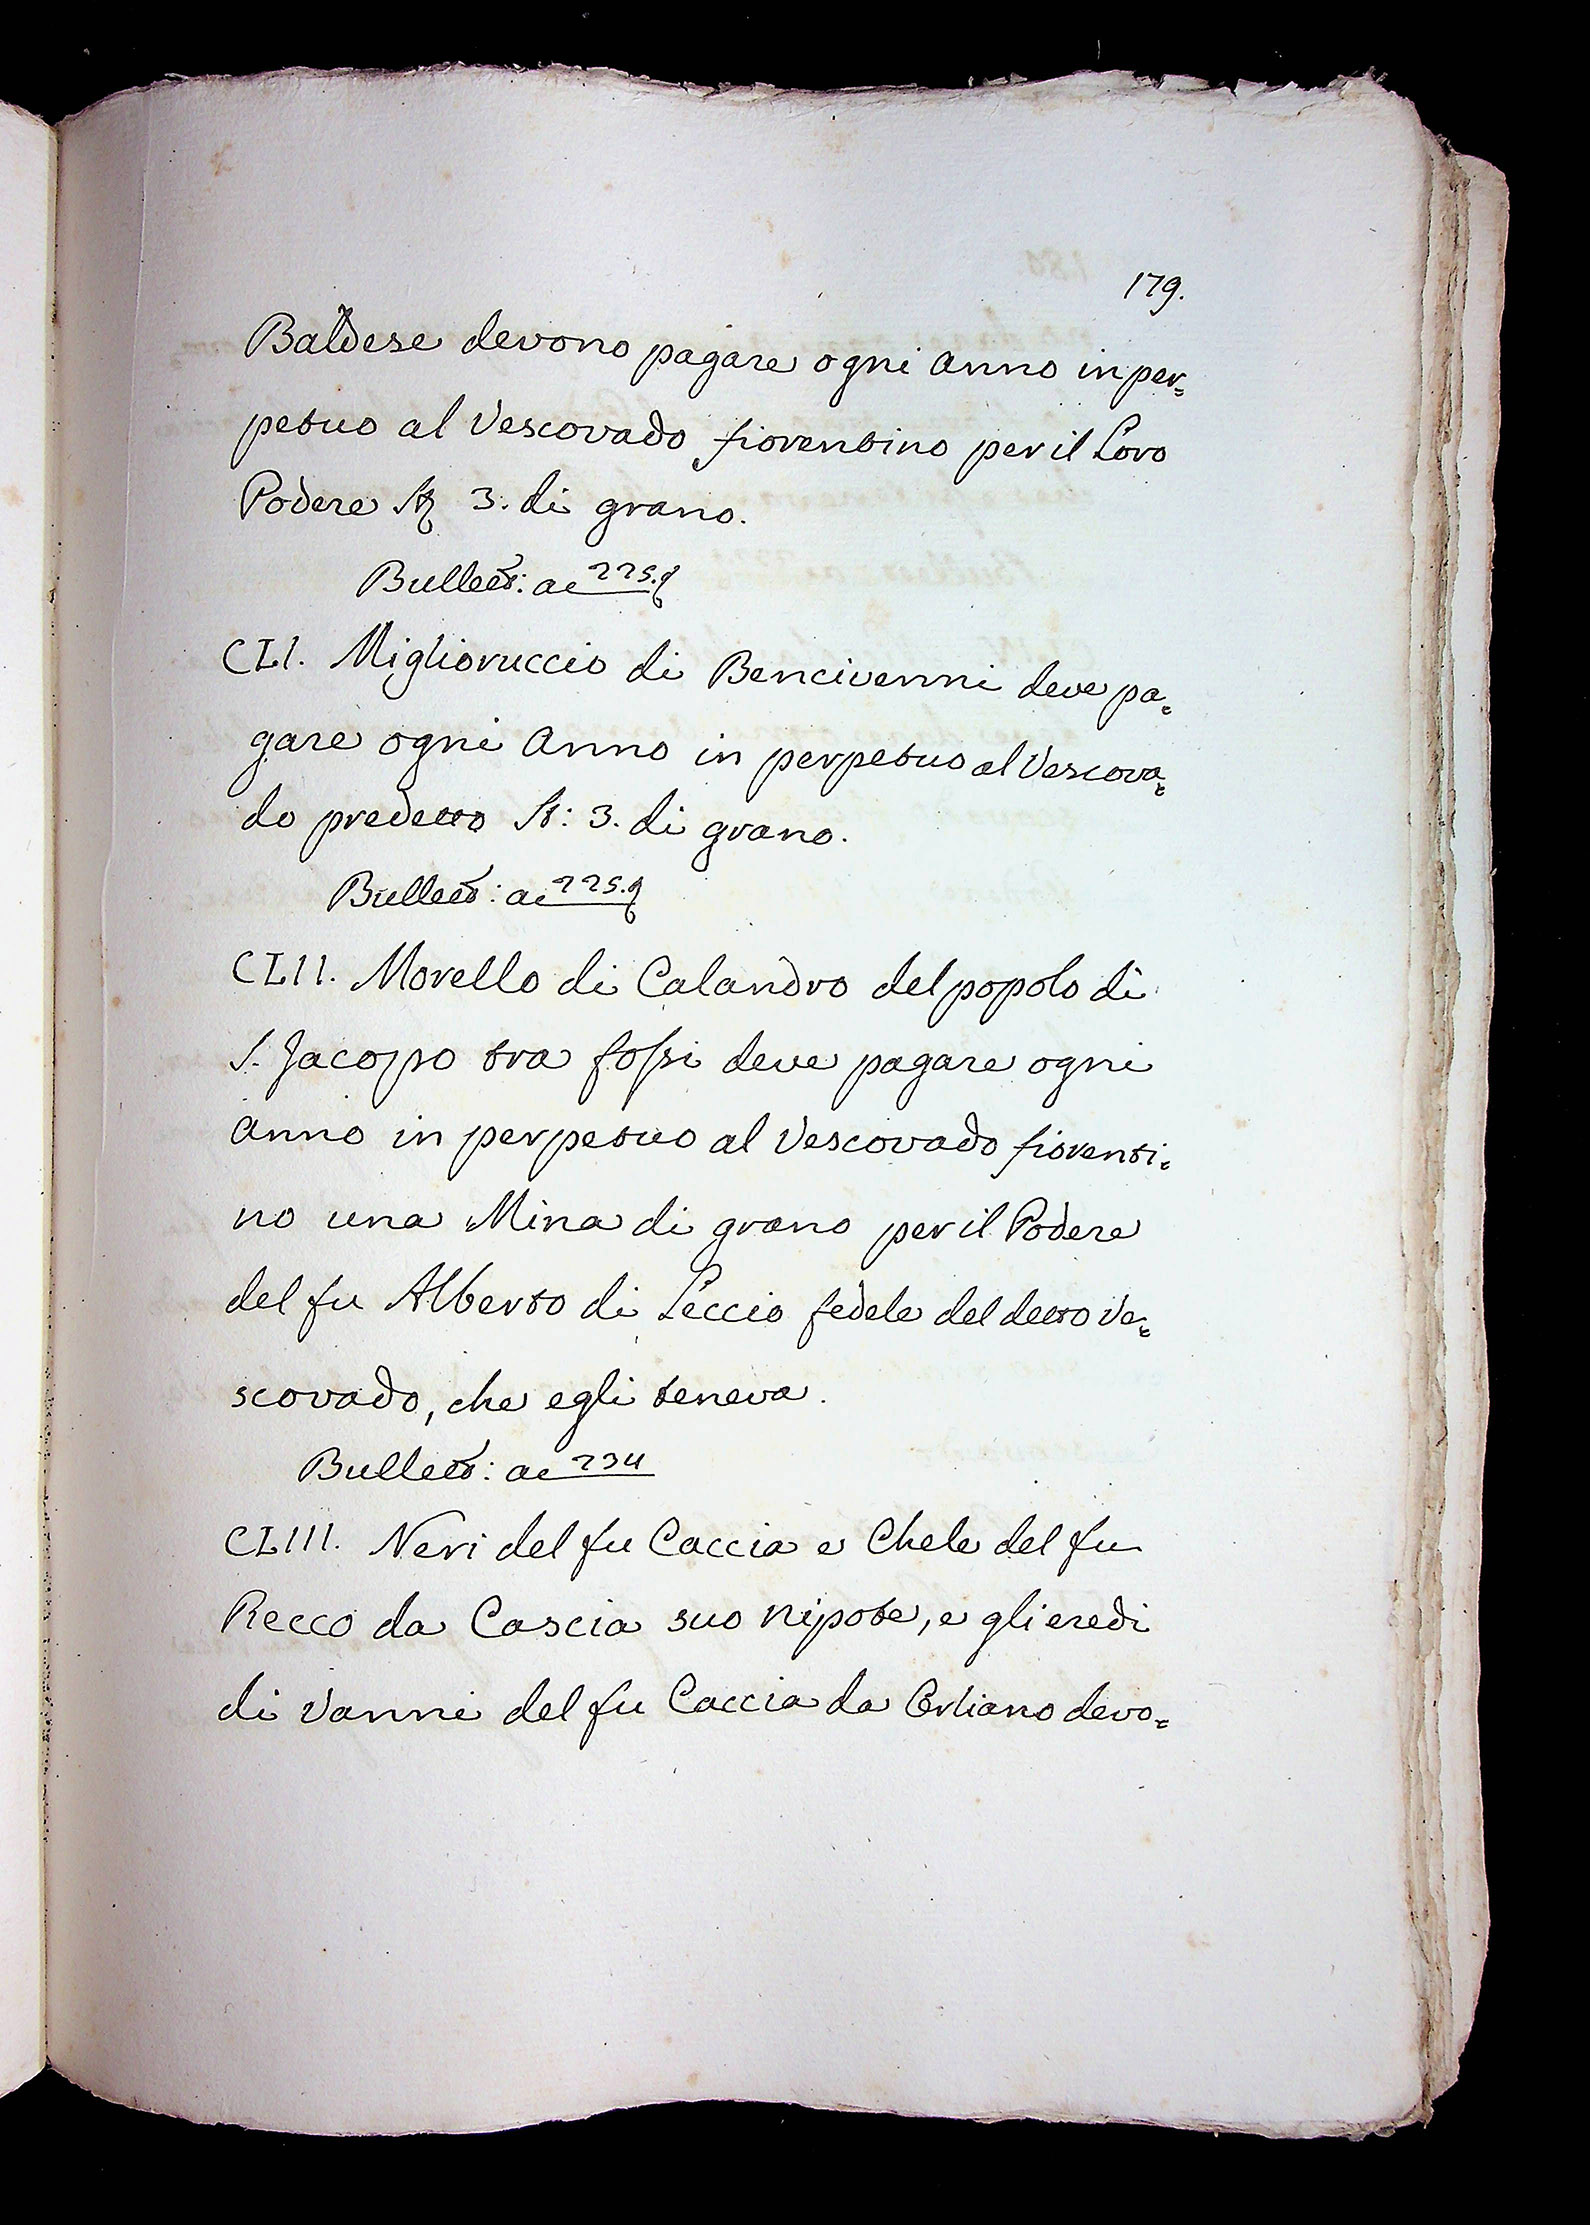 179.
Baldese devono pagare ogni anno in per=
petuo al Vescovado fiorentino per il Loro
Podere St 3. di grano.
Bullett: ac 225.
CLI. Miglioruccio di Bencivenni deve pa=
gare ogni Anno in perpetuo al Vescova=
do predetto St: 3. di grano.
Bullett: ac 225.
CLII. Morello di Calandro del popolo di
S. Jacopo tra fossi deve pagare ogni
Anno in perpetuo al Vescovado fiorenti=
no una Mina di grano per il Podere
del fu Alberto di Leccio fedele del detto Ve=
scovado, che egli teneva.
Bullett: ac 234
CLIII. Neri del fu Caccia e Chele del fu
Recco da Cascia suo nipote, e gli eredi
di Vanni del fu Caccia da devo=